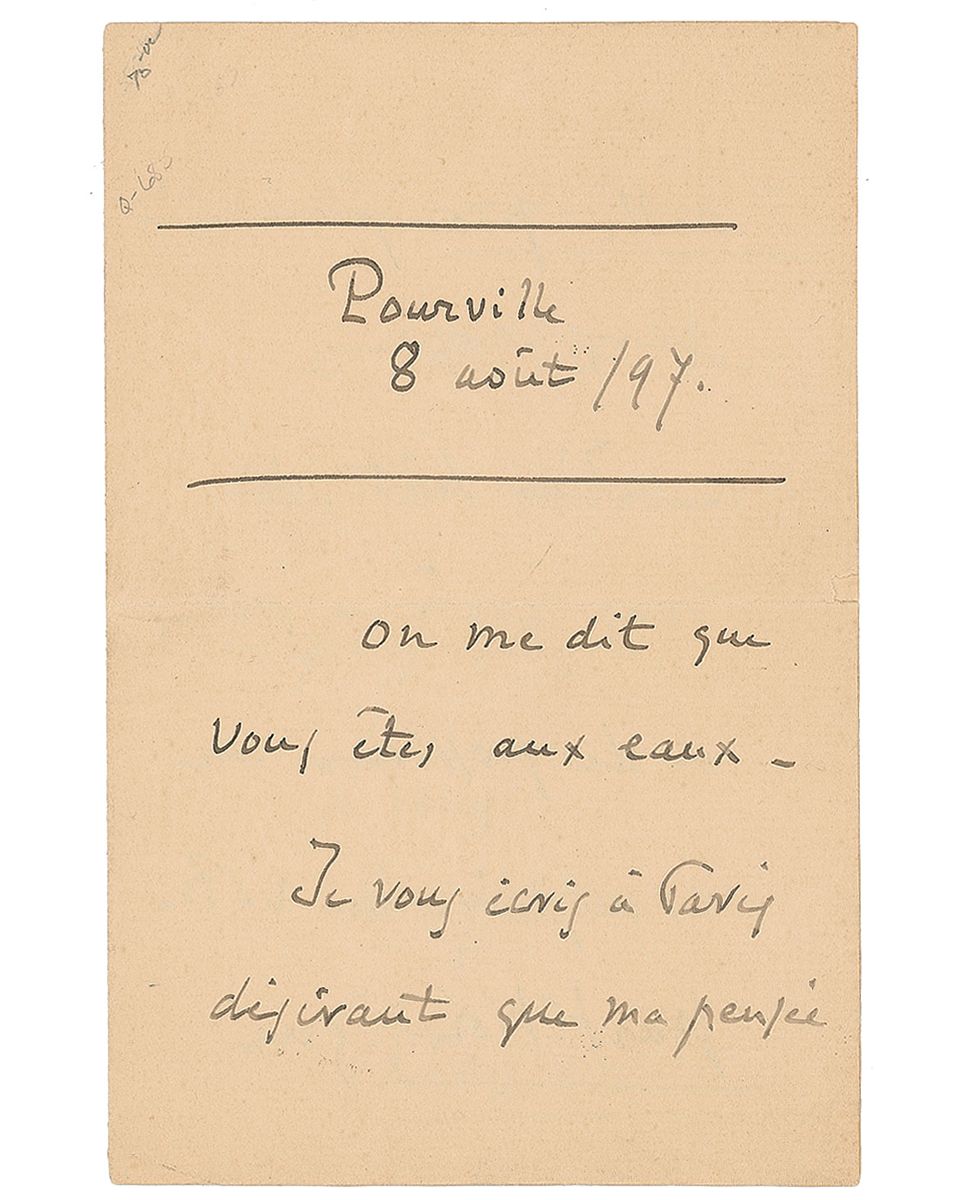 Pourville
8 août /97.
On me dit que
vous êtes aux eaux -
Je vous écris à Paris
désirant que ma pensée